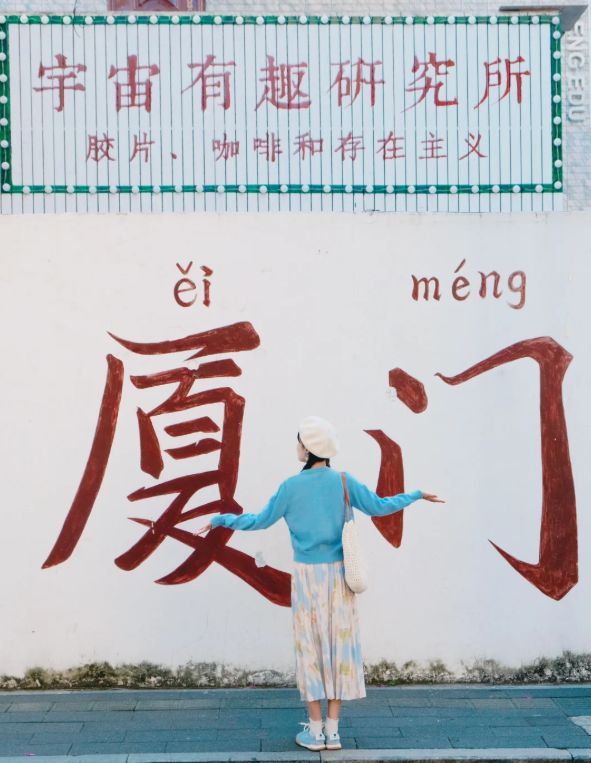 宇宙有趣研究所
胶片、咖啡和存在主义
ěi méng
厦门